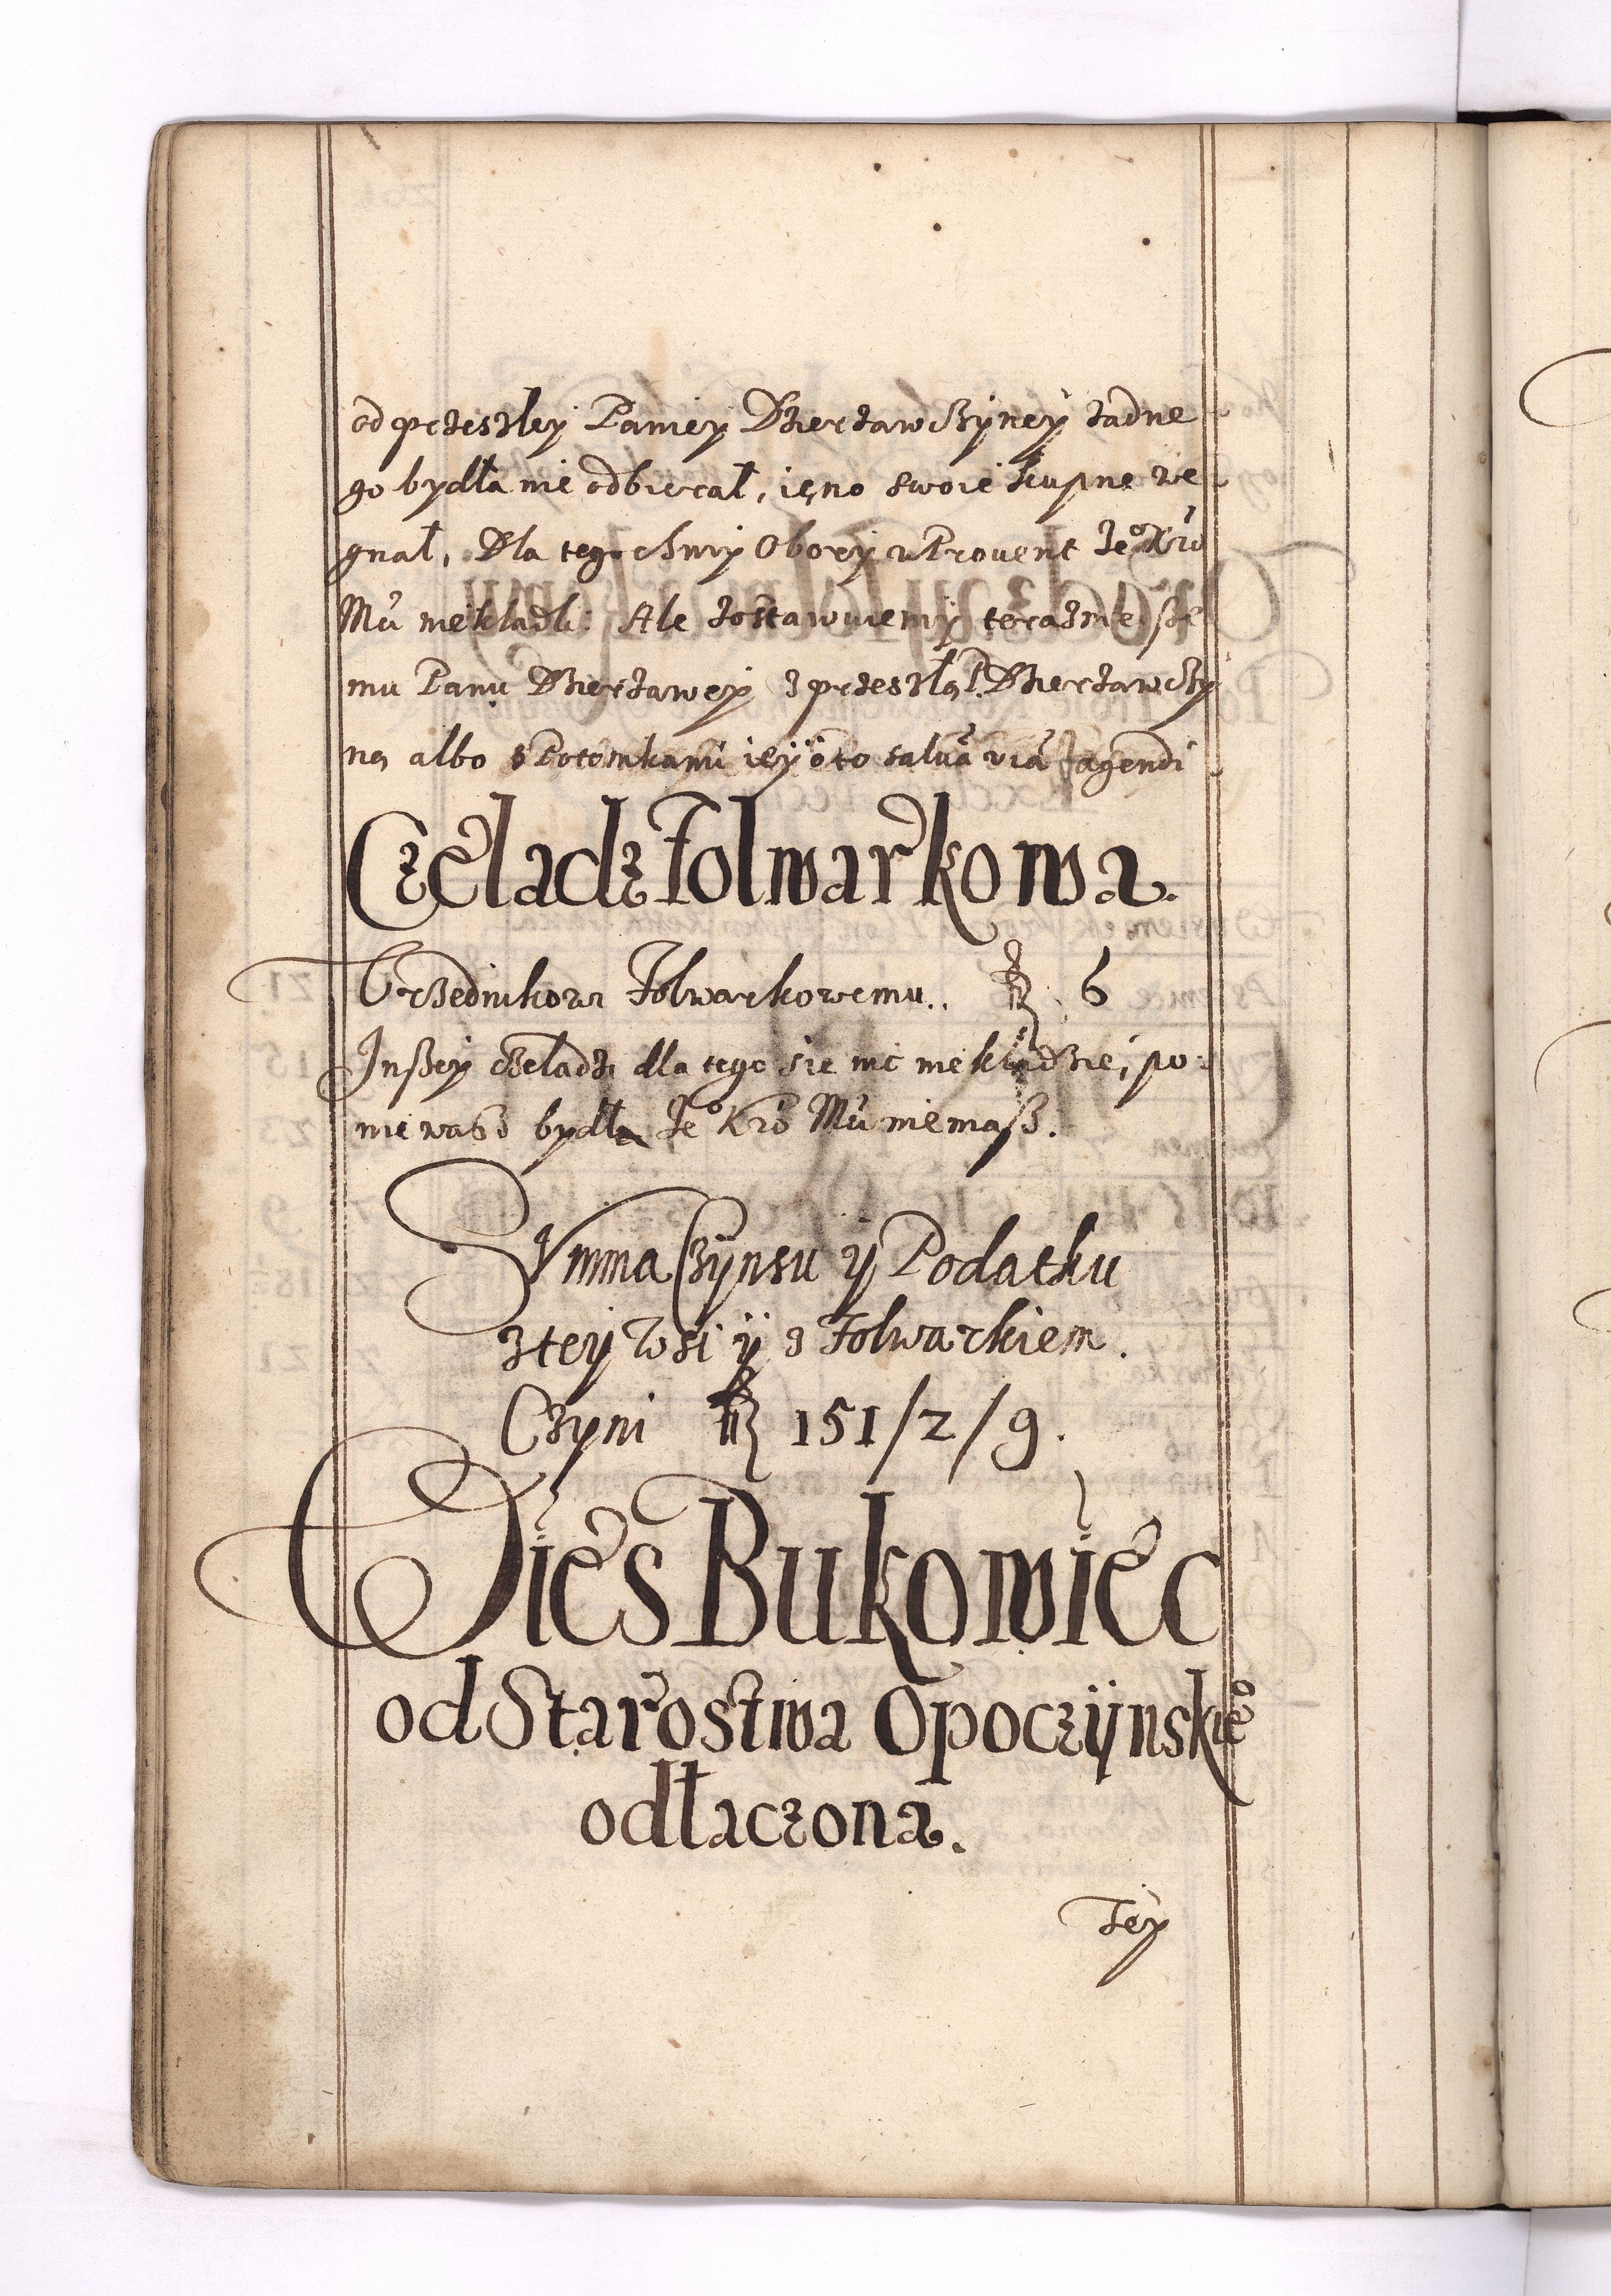 od przeszłey Paniey Dzierżawczÿneÿ żadne
go bydła nie odbierał, ieno swoie kupne we
gnał, Dla tego chmy Oborÿ w Prouent Je° Kró
Mći niekładli: Ale zostawuiemÿ teraznieysze
mu Panu Dzierżawcÿ z przeszłą P. Dzierżawczÿ
ną albo s Potomkami ieÿ o to saluã uiã agendi
Czeladz Folwarkowa.
Vrzednikowi Folwarkowemu.. fl. 6
Inßey czeladzi dla tego sie nic niekładzie, po:
niewasz bydła Je° Kró Mći niemasz.
Summa Czÿnsu ÿ Podatku
z tey Wsi ÿ z Folwarkiem.
Czyni fl 151/2/9.
Wies Bukowiec
od Starostwa Opoczÿnskie°
odłaczona.
Teÿ